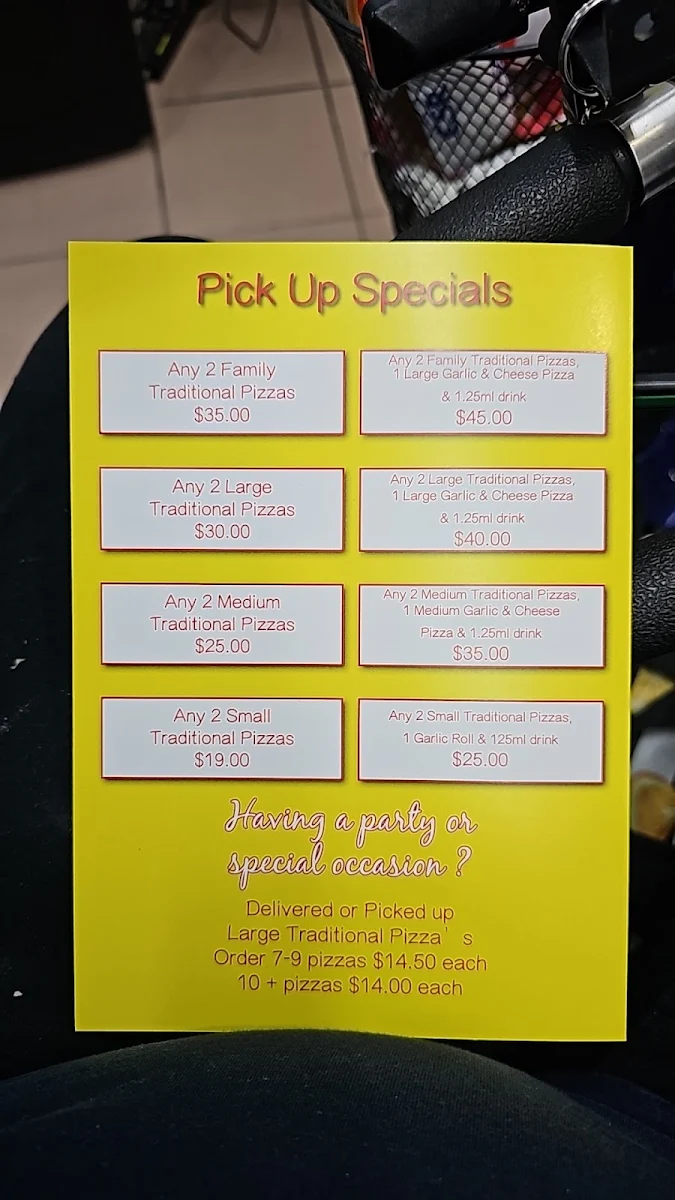 Pick Up Specials
Any 2 Family
Traditional Pizzas
$35.00
Any 2 Family Traditional Pizzas,
1 Large Garlic & Cheese Pizza
& 1.25ml drink
$45.00
Any 2 Large
Traditional Pizzas
$30.00
Any 2 Large Traditional Pizzas,
1 Large Garlic & Cheese Pizza
& 1.25ml drink
$40.00
Any 2 Medium
Traditional Pizzas
$25.00
Any 2 Medium Traditional Pizzas,
1 Medium Garlic & Cheese
Pizza & 1.25ml drink
$35.00
Any 2 Small
Traditional Pizzas
$19.00
Any 2 Small Traditional Pizzas,
1 Garlic Roll & 125ml drink
$25.00
Having a party or
special occasion ?
Delivered or Picked up
Large Traditional Pizza's
Order 7-9 pizzas $14.50 each
10 + pizzas $14.00 each